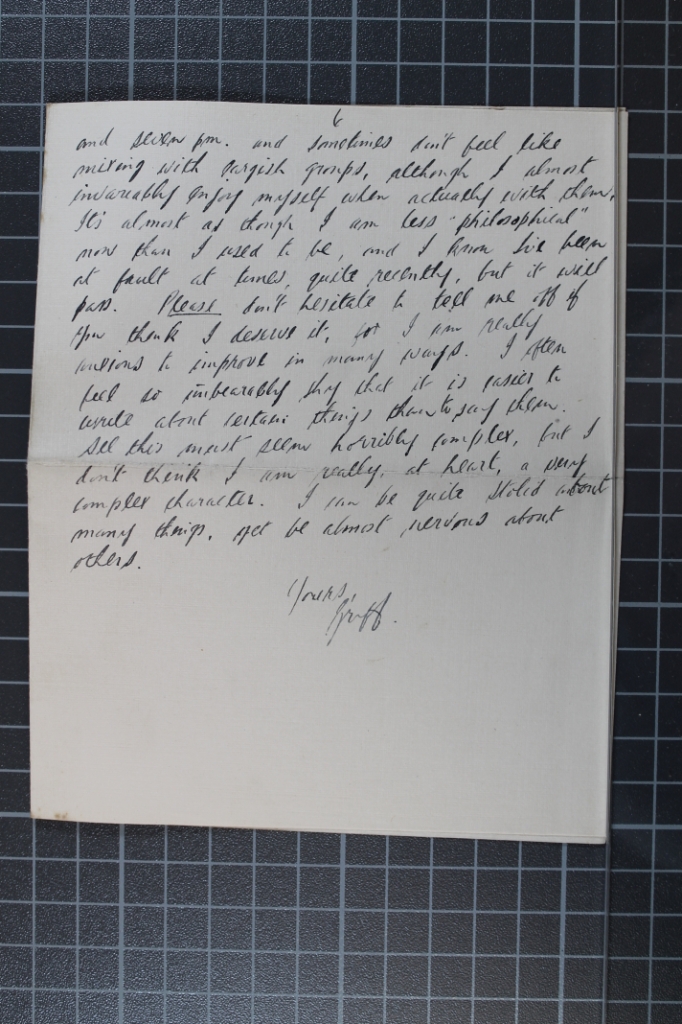 6
and seven pm. and sometimes don't feel like
mixing with largish groups, although I almost
invareably enjoy myself when actually with them.
It's almost as though I am less "philosophical"
now than I used to be, and I know I've been
at fault at times, quite recently, but it will
pass. Please don't hesitate to tell me off if
you think I deserve it, for I am really
anxious to improve in many ways. I often
feel so unbearably shy that it is easier to
write about certain things than to say them.
All this must seem horribly complex, but I
don't think I am really, at heart, a very
complex character. I can be quite stolid about
many things, yet be almost nervous about
others.
Yours,
Griff.